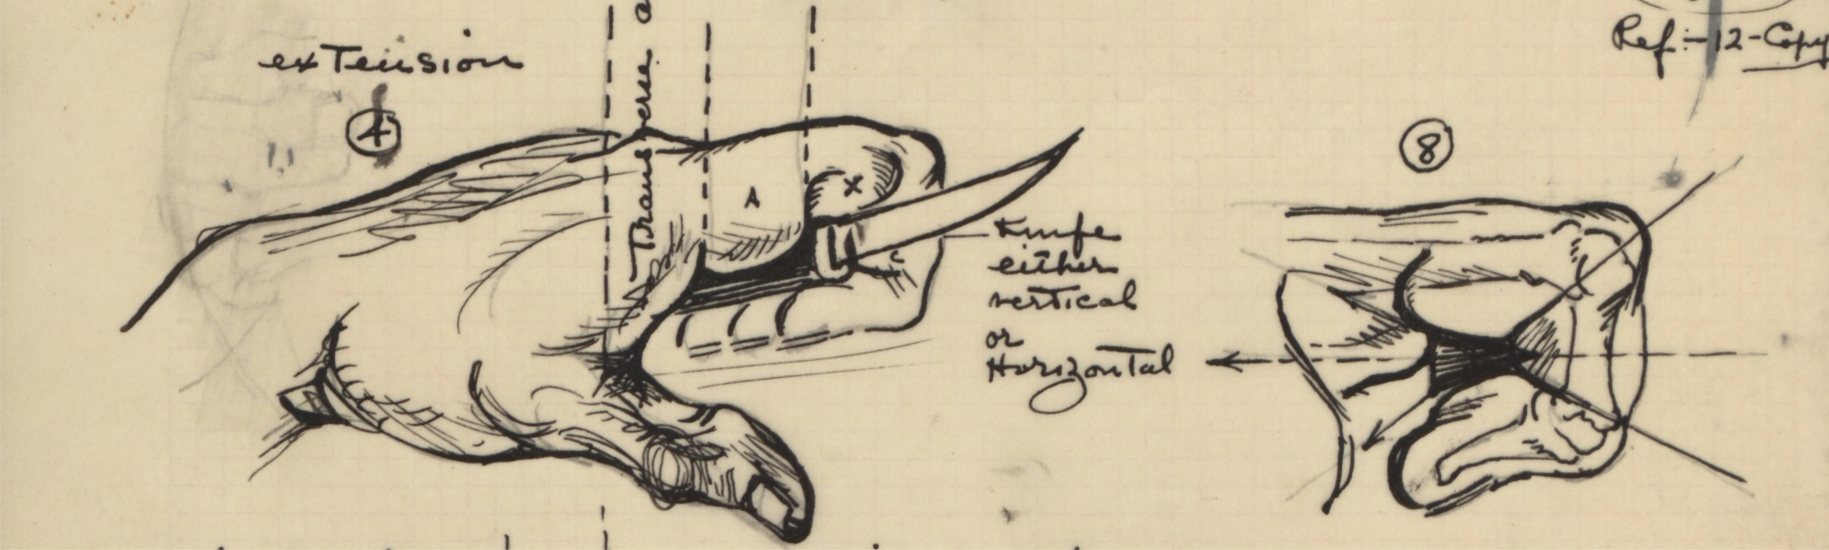 exTension
4
Transverse a
A
X
Knife
either
vertical
or
Horizontal
8
Ref:-12-Copy